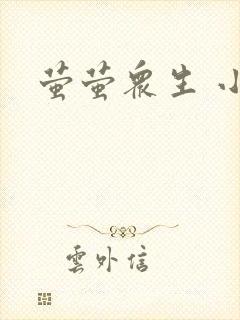 萤萤众生 小
雲外信